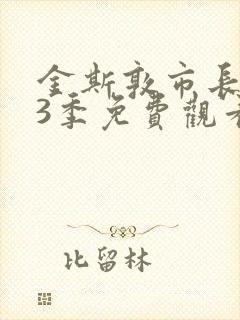 金斯敦市長
3季免費觀看
比留林